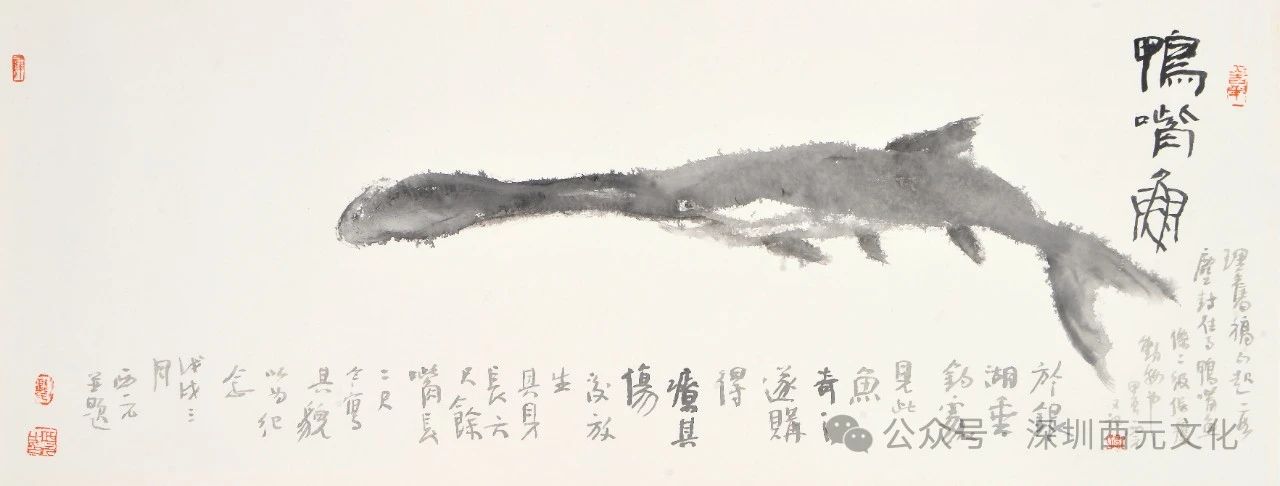 鴨嘴魚
理舊稿勾起一段
塵封往事鴨嘴魚
係二級保
動物
於銀
湖垂
釣處
見此
魚
奇
遂購
得
療其
傷
後放
生
其身
長六
尺餘
嘴長
二尺
今寫
其貌
以為紀
念
戊戌三
月
西元
並題
公众号 · 深圳西元文化